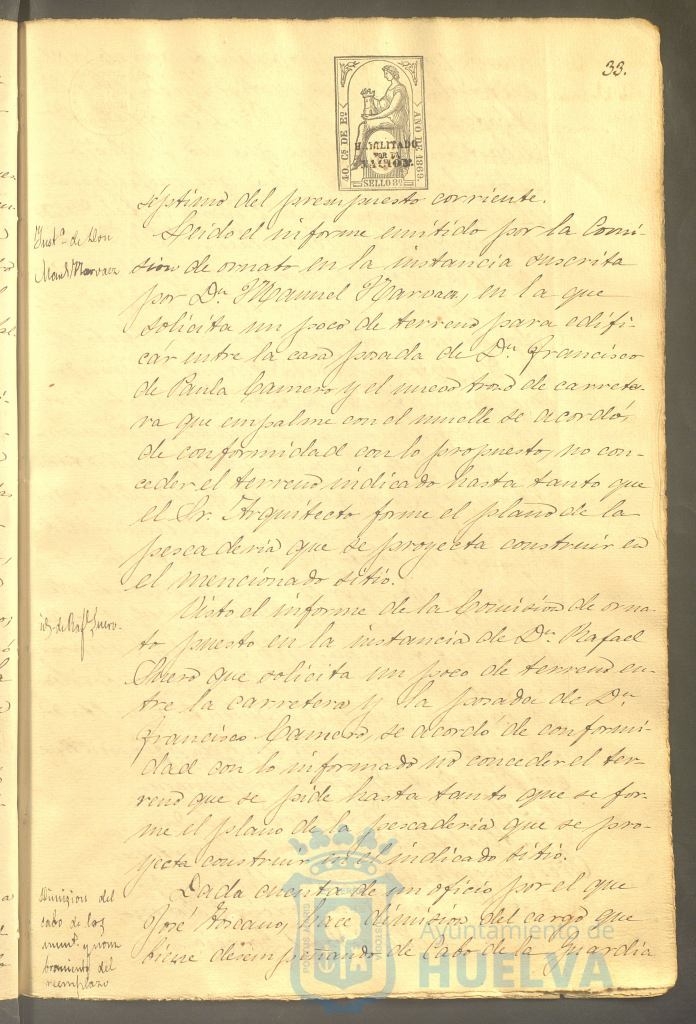 33.
40 Cs DE Eo
AÑO DE 1869
HABILITADO
POR LA
NACION.
SELLO 8º
séptimo del presupuesto corriente.
Instª de Don
Manl Narvaez
Leido el informe emitido por la Comi-
sion de ornato en la instancia suscrita
por Dn Manuel Narvaez, en la que
solicita un poco de terreno para edifi-
car entre la casa posada de Dn Francisco
de Paula Camero y el nuevo trozo de carrete-
ra que empalme con el muelle se acordó,
de conformidad con lo propuesto, no con-
ceder el terreno indicado hasta tanto que
el Sr. Arquitecto forme el plano de la
pescaderia que se proyecta construir en
el mencionado sitio.
id. de Rafl Suero.
Visto el informe de la Comision de orna-
to puesto en la instancia de Dn Rafael
Suero que solicita un poco de terreno en-
tre la carretera y la posada de Dn
Francisco Camero, se acordó de conformi-
dad con lo informado no conceder el ter-
reno que se pide hasta tanto que se for-
me el plano de la pescaderia que se pro-
yecta construir en el indicado sitio.
Dimision del
cabo de los
munl y nom
bramiento del
reemplazo
Dada cuenta de un oficio por el que
José Toscano, hace dimision del cargo que
viene desempeñando de Cabo de la Guardia
Ayuntamiento de
HUELVA